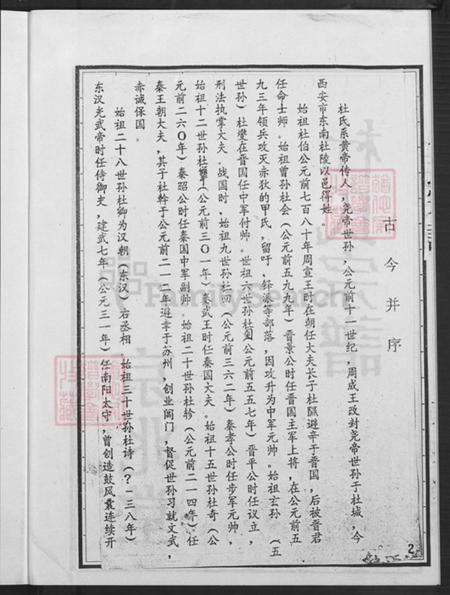 古今并序
杜氏系黄帝传人，尧帝世孙，公元前十一世纪，周成王改封尧帝世孙于杜城，今
西安市东南杜陵以邑得姓
始祖杜伯公元前七八十年周宣王时在朝任大夫长子杜隰避辛于晋国，后被晋君
任命士师。始祖曾孙杜会（公元前五九九年）晋景公时任晋国主军上将，在公元前五
九三年领兵攻灭赤狄的甲氏，留吁，铎派等部落，因攻升为中军元帅。始祖玄孙（五
世孙）杜燮在晋国任中军付帅。世祖六世孙杜（公元前五五七年）晋平公时任议立，
刑法执掌大夫。战国时，始祖九世孙杜回（公元前三六二年）秦孝公时任步军元帅，
始祖十二世孙杜（公元前三〇一年）秦武王时任秦国大夫。始祖十五世孙杜奇（公
元前二六〇年）秦昭公时任秦国中军副帅。始祖二十世孙杜轸（公元前二一四年）任
秦王朝大夫，其子杜幹于公元前二一二年避辛于苏州，创业阊门，督促世孙习就文武，
赤诚保国。
始祖二十八世孙杜卿为汉朝（东汉）右丞相 始祖三十世孙杜诗（？—三八年）
东汉光武帝时任侍御史，建武七年（公元三一年）任南阳太守，曾创造鼓风囊连续开
2